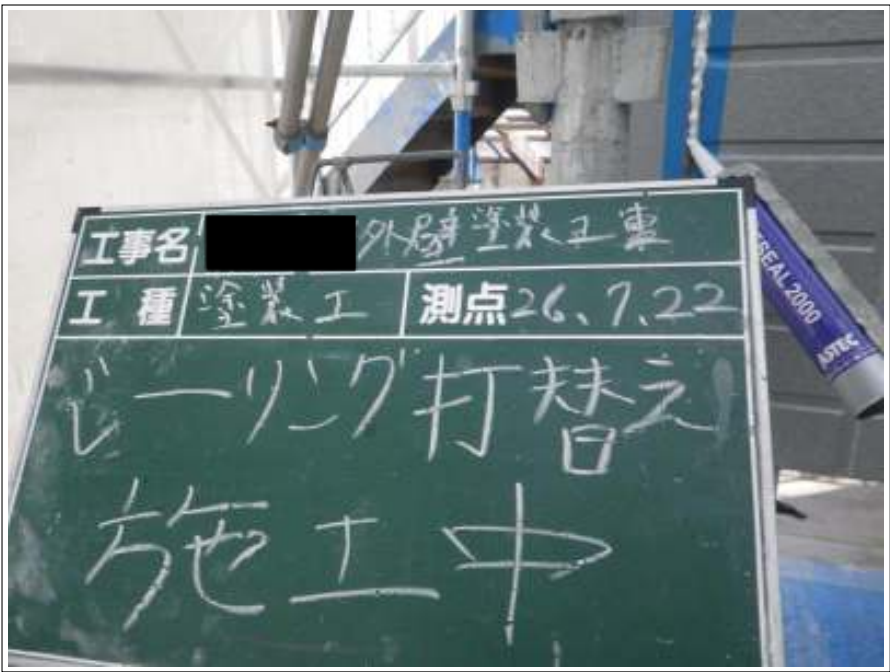 工事名 外壁塗装工事
工種 塗装工 測点 26.7.22
シーリング打替え
施工中
SEAL 2000
ASTEC